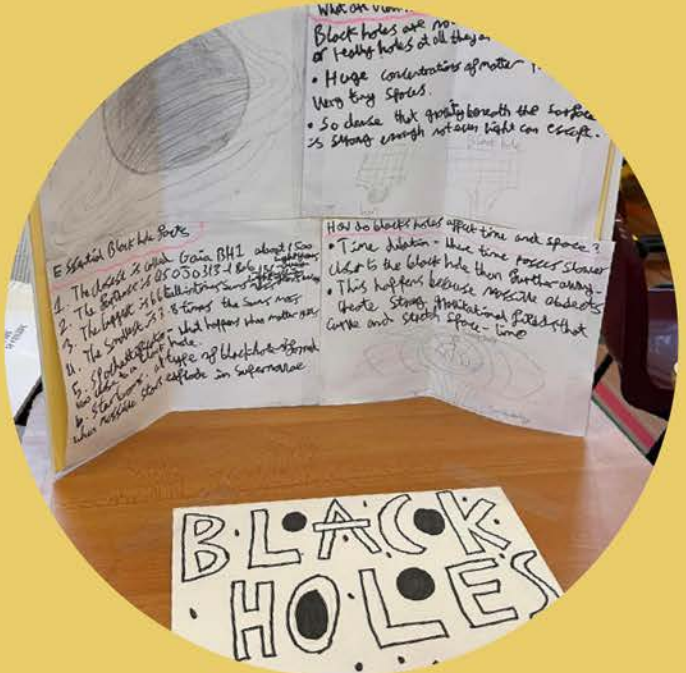 What are
Black holes are
or really holes at all they
• Huge concentrations of matter
very tiny spaces.
• So dense that gravity beneath the surface
is strong enough not even light can escape.
Black hole
Essential Black hole facts
1. The closest is called Gaia BH1 about 1500
2. The furthest is
3. The biggest is 66 billion times Suns mass
4. The smallest is 3.8 times the Suns mass
5. Spaghettification - what happens when matter gets
too close to a black hole.
6. Stellar - a type of blackhole formed
when massive stars explode in supernovae
How do blacks holes affect time and space?
• Time dilation - where time passes slower
closer to the black hole then further away -
• This happens because massive objects
create strong gravitational fields that
curve and stretch space-time
BLACK
HOLES